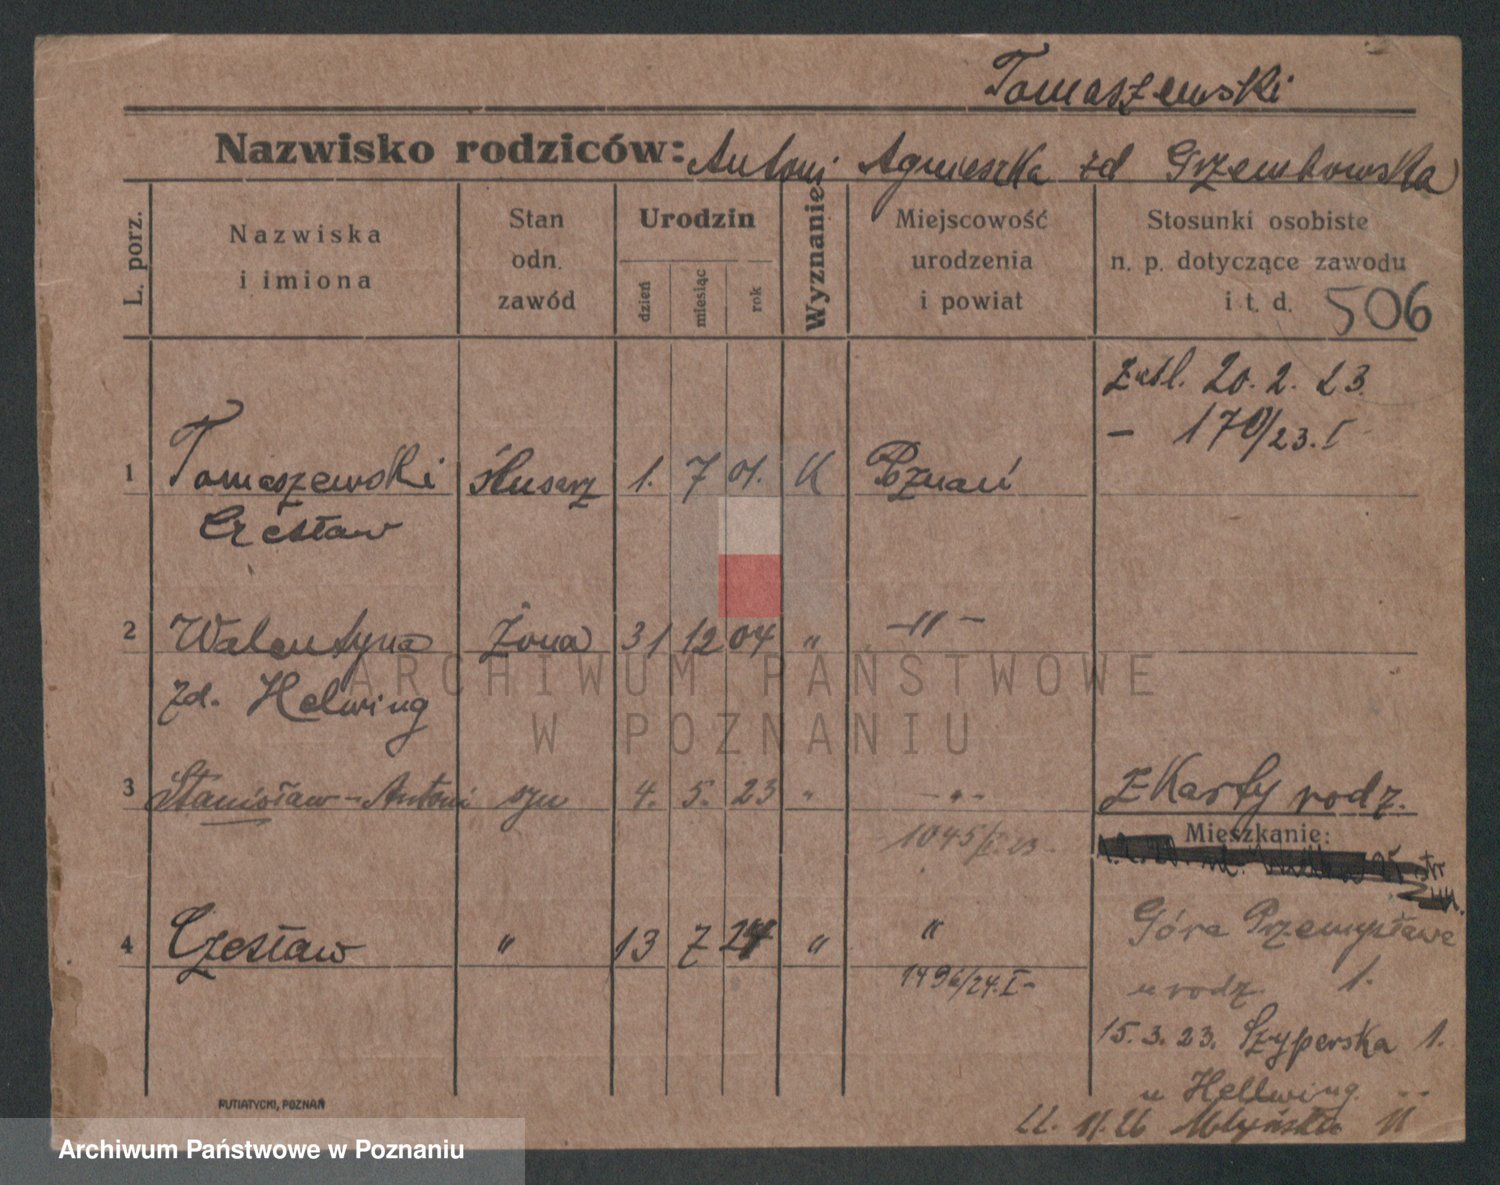 Tomaszewski
Nazwisko rodziców: Antoni Agnieszka zd Grzembowska
L. porz.
Nazwiska
i imiona
Stan
odn.
zawód
Urodzin
dzień
miesiąc
rok
Wyznanie
Miejscowość
urodzenia
i powiat
Stosunki osobiste
n. p. dotyczące zawodu
i t. d. 506
Zaśl. 20. 2. 23.
- 170/23. I
1 Tomaszewski ślusarz 1. 7 01. K Poznań
Czesław
2 Walentyna żona 31 12 04 " -"-
zd. Helwing
3 Stanisław-Antoni syn 4. 5. 23 " -"-
Z Karty rodz.
1045/I.23-
Mieszkanie:
4 Czesław " 13 7 24 " "
1496/24.I-
Góra Przemysława
u rodz. 1.
15.3.23. Szyperska 1.
u Hellwing.
22. 11. 26 Młyńska 11
PUTIATYCKI, POZNAŃ
ARCHIWUM PAŃSTWOWE
W POZNANIU
Archiwum Państwowe w Poznaniu